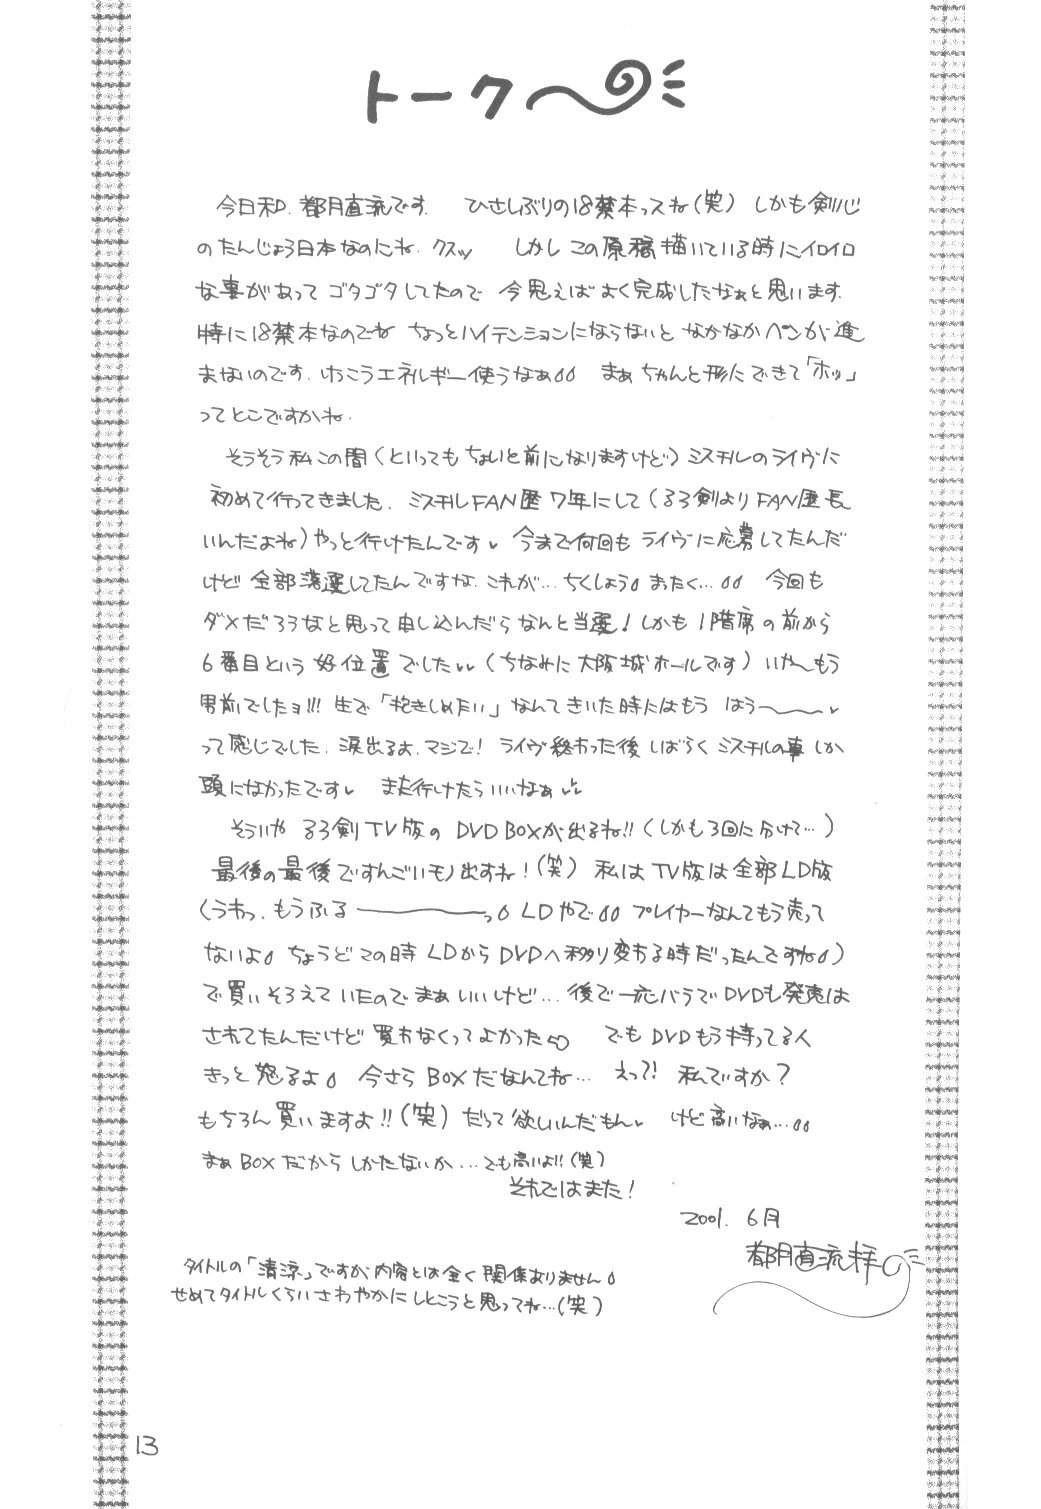 トーク〜
今日和. 都月直流です. ひさしぶりの18禁本っスね(笑) しかも剣心
のたんじょう日本なのにね. クスッ しかしこの原稿描いている時にイロイロ
な事があって ゴタゴタしてたので 今思えばよく完成したなぁと思います.
特に18禁本なのでね ちょっとハイテンションにならないと なかなかペンが進
まないのです. けっこうエネルギー使うなぁ まぁちゃんと形にできて「ホッ」
ってとこですかね.
そうそう私この間(といってもちょいと前になりますけど)ミスチルのライヴに
初めて行ってきました. ミスチルFAN歴7年にして(るろ剣よりFAN歴長
いんだよね)やっと行けたんです♥ 今まで何回も ライヴに応募してたんだ
けど 全部落選してたんですな. これが… ちくしょう まったく… 今回も
ダメだろうなと思って申し込んだらなんと当選! しかも1階席の前から
6番目という 好位置でした♥♥(ちなみに大阪城ホールです) いや〜もう
男前でしたョ!!! 生で「抱きしめたい」なんてきいた時にはもう はう〜〜♥
って感じでした. 涙出るよ. マジで! ライヴ終わった後 しばらく ミスチルの事しか
頭になかったです♥ また行けたらいいなぁ♥♥
そういや るろ剣TV版の DVD BOXが出るね!!(しかも3回に分けて…)
最後の最後ですんごいモノ出すね!(笑) 私は TV版は全部LD版
(うわっ. もうふる――――っ LDやで プレイヤーなんてもう売って
ないよ ちょうどこの時 LDからDVDへ移り変わる時だったんですね)
で買いそろえていたので まぁいいけど… 後で一応バラでDVDも発売は
されてたんだけど 買わなくってよかった でも DVDもう持ってる人
きっと 怒るよ 今さら BOXだなんてね… えっ?! 私ですか?
もちろん買いますよ!!(笑) だって欲しいんだもん♥ けど高いなぁ…
まぁBOXだからしかたないか…でも高いよ!!(笑)
それではまた!
2001. 6月
都月直流 拝
タイトルの「清涼」ですが内容とは全く関係ありません
せめてタイトルくらいさわやかにしとこうと思ってね…(笑)
13